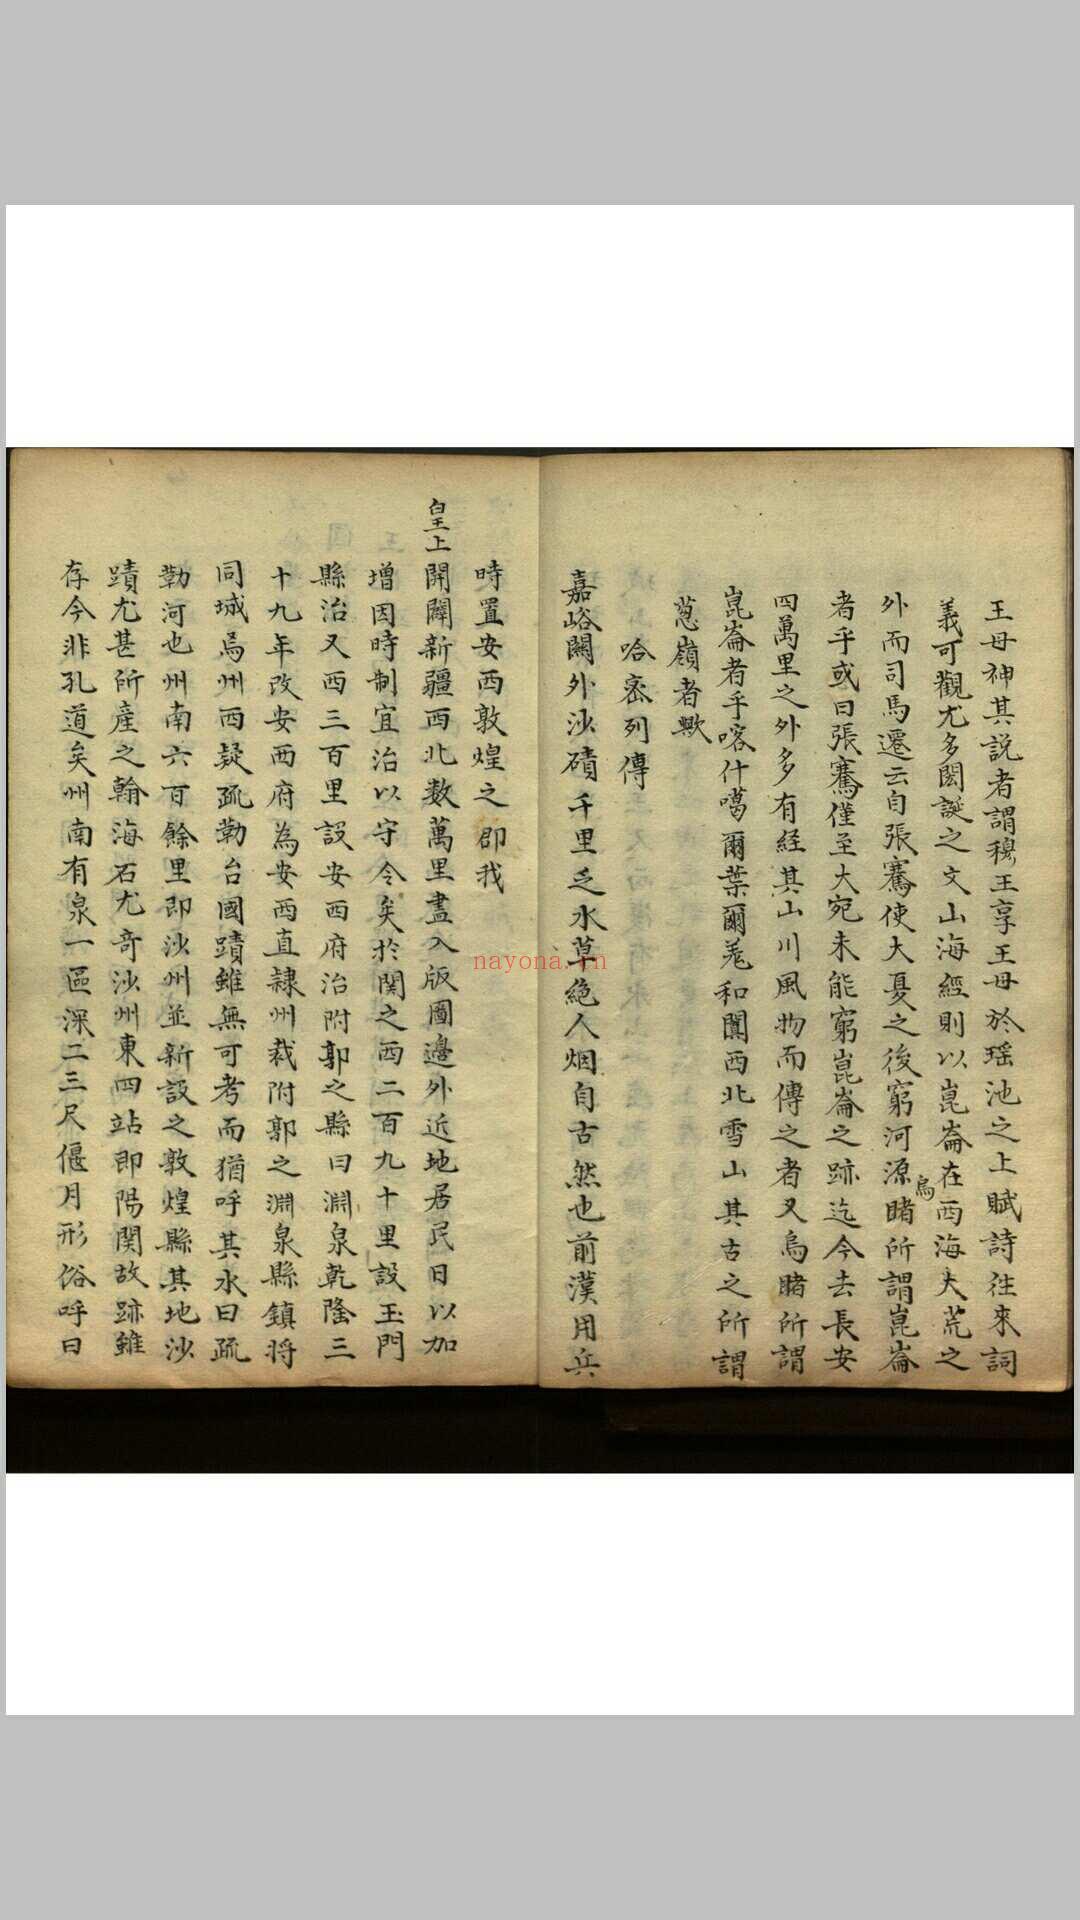 王母神其說者謂穆王享王母於瑶池之上賦詩徃來詞
義可觀尤多閎誕之文山海經則以崑崙在西海大荒之
外而司馬遷云自張騫使大夏之後窮河源烏睹所謂崑崙
者乎或曰張騫僅至大宛未能窮崑崙之跡迄今去長安
四萬里之外多有經其山川風物而傳之者又烏睹所謂
崑崙者乎喀什噶爾葉爾羌和闐西北雪山其古之所謂
葱嶺者歟
哈宻列傳
嘉峪關外沙磧千里乏水草絶人烟自古然也前漢用兵
時置安西敦煌之郡我
皇上開闢新疆西北数萬里盡入版圖邊外近地居民日以加
增因時制宜治以守令矣於関之西二百九十里設玉門
縣治又西三百里設安西府治附郭之縣曰淵泉乾隆三
十九年改安西府為安西直隷州裁附郭之淵泉縣鎮將
同城烏州西疑疏勒台國蹟雖無可考而猶呼其水曰疏
勒河也州南六百餘里即沙州並新設之敦煌縣其地沙
蹟尤甚所產之翰海石尤奇沙州東四站即陽関故跡雖
存今非孔道矣州南有泉一區深二三尺偃月形俗呼曰
nayona.cn